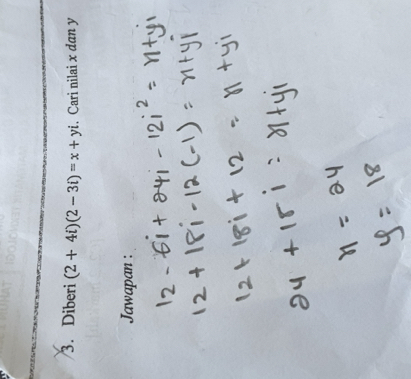 3. Diberi (2 + 4i)(2 − 3i) = x + yi. Cari nilai x dan y
Jawapan :
12 - 6i + 24i - 12i² = x+yi
12 + 18i - 12 (-1) = x+yi
12 + 18i + 12 = x + yi
24 + 18i = x+yi
x = 24
y = 18